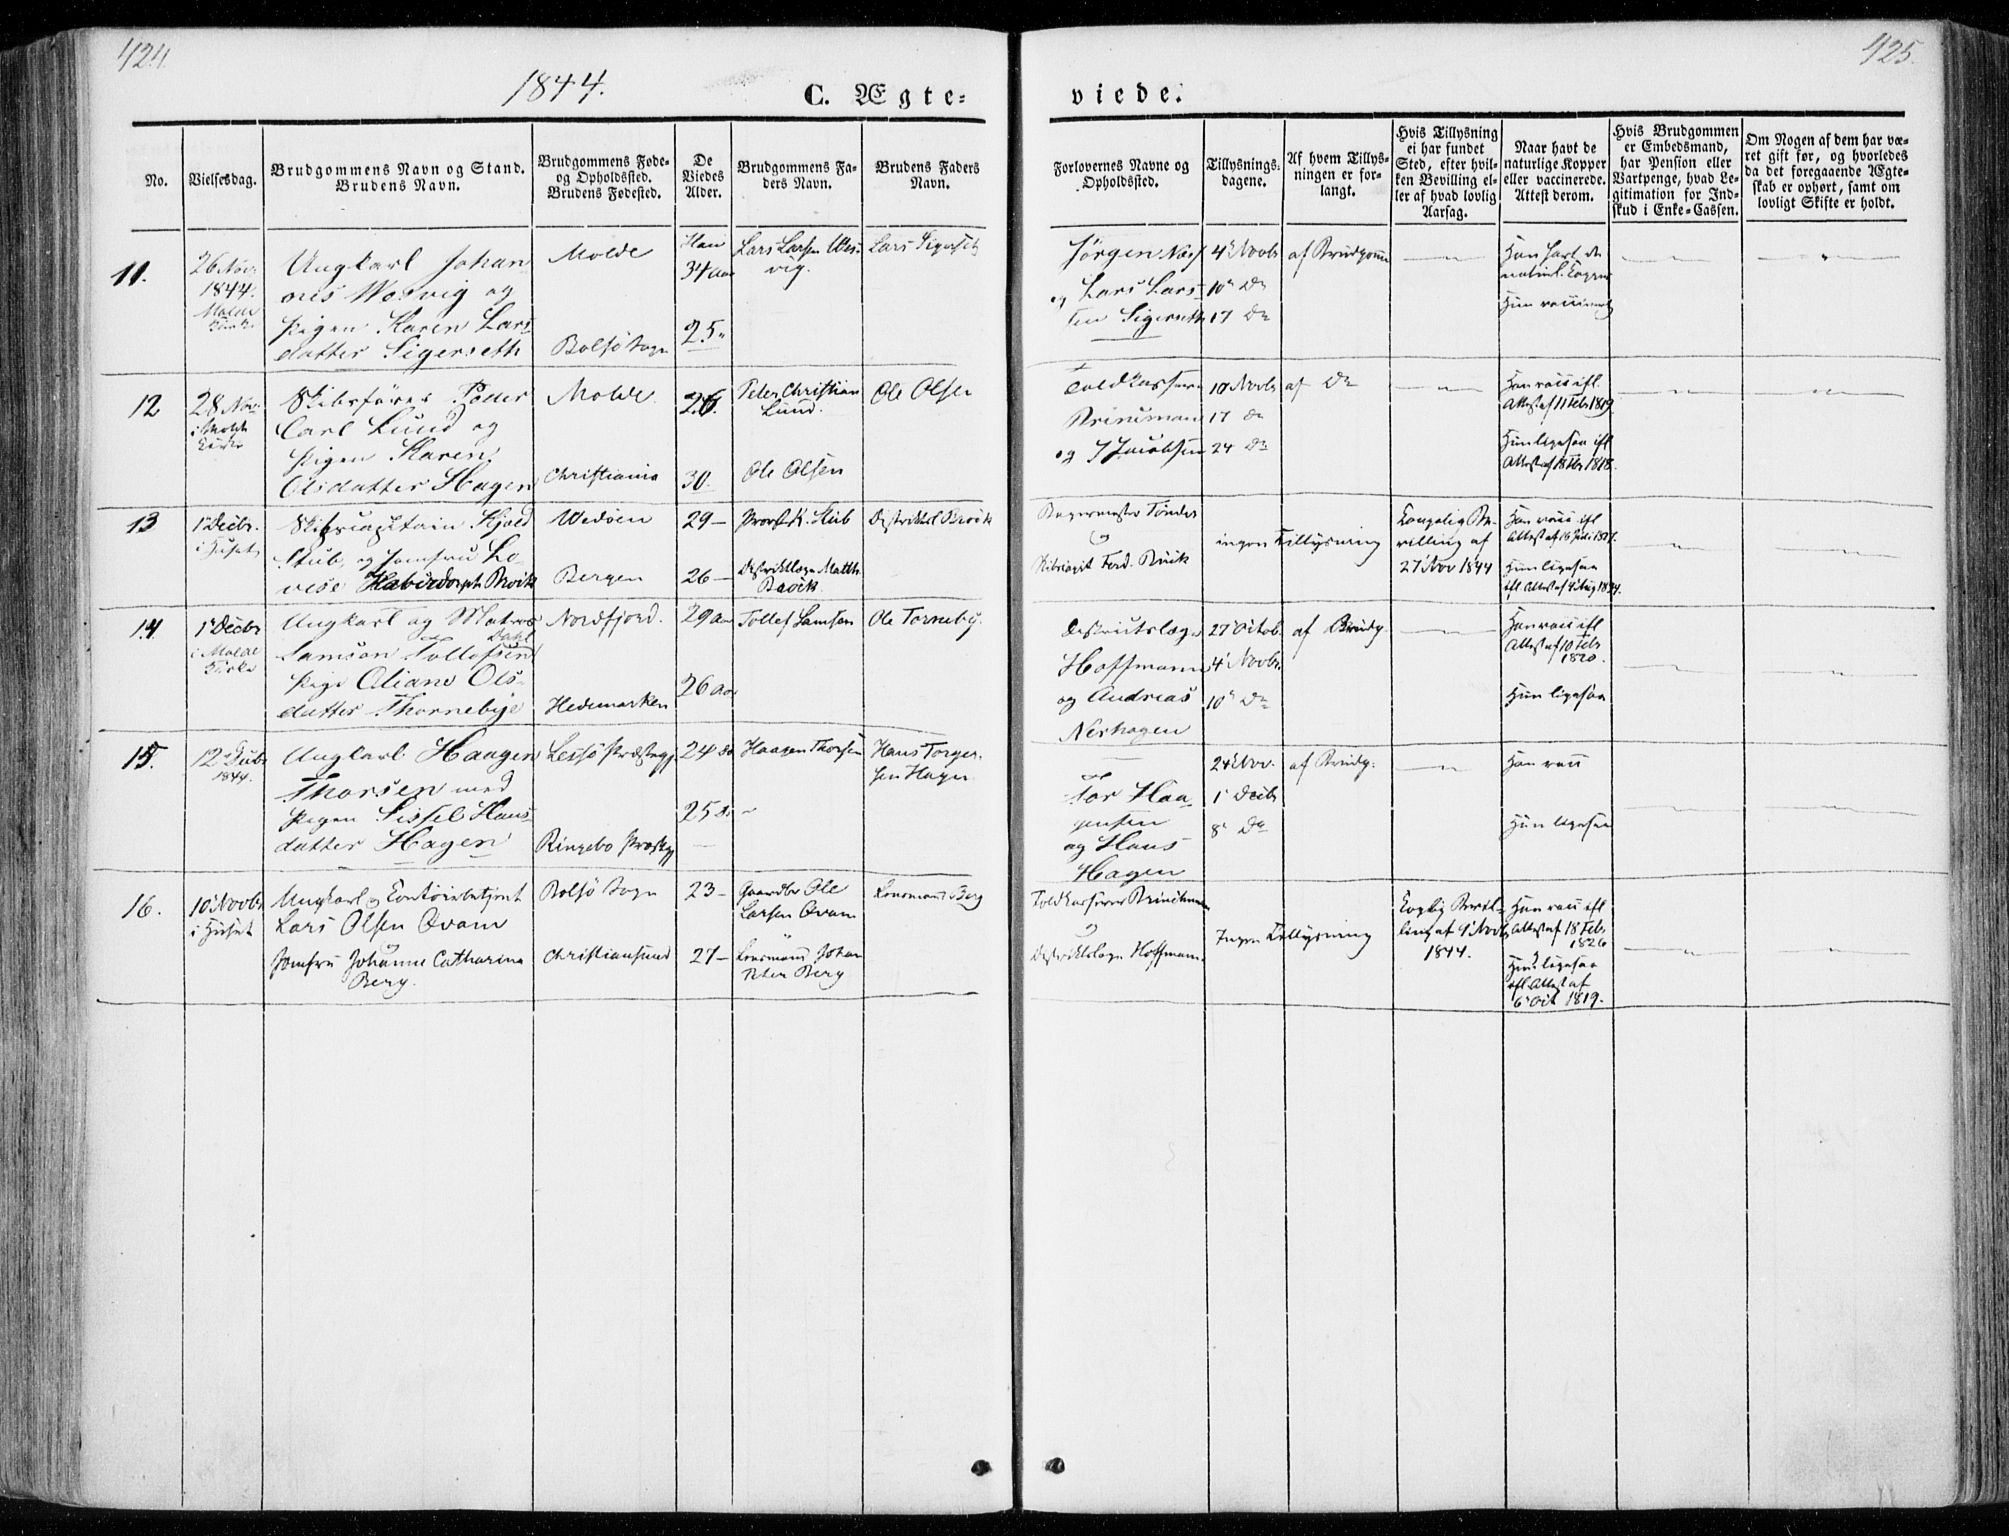 424.
425.
1844.
C. Ægte-
viede.
No.
Vielsesdag.
Brudgommens Navn og Stand.
Brudens Navn.
Brudgommens Føde-
og Opholdssted.
Brudens Fødested.
De
Viedes
Alder.
Brudgommens Fa-
ders Navn.
Brudens Faders
Navn.
Forlovernes Navne og
Opholdssted.
Tillysnings-
dagene.
Af hvem Tillys-
ningen er for-
langt.
Hvis Tillysning
ei har fundet
Sted, efter hvil-
ken Bevilling el-
ler af hvad lovlig
Aarsag.
Naar havt de
naturlige Kopper
eller vaccinerede.
Attest derom.
Hvis Brudgommen
er Embedsmand,
har Pension eller
Vartpenge, hvad Le-
gitimation for Ind-
skud i Enke-Cassen.
Om Nogen af dem har væ-
ret gift før, og hvorledes
da det foregaaende Ægte-
skab er ophørt, samt om
lovligt Skifte er holdt.
11.
26 Nov.
1844.
Molde
Kirke
Ungkarl Johan-
nes og
Pigen Karen Lars
datter Sigerseth
Molde
Bolsö Sogn
Han
34 aar
25
Lars Larsen
vig.
Lars Sigerseth
Jörgen
og Lars Lars-
sen Sigerseth
4 Novbr
10 Do
17 Do
af Brudgom
Han havt de
naturl. Kopper
Hun vaccineret
12
28 Nov
i Molde
Kirke
Skibsförer Peder
Carl Lund og
Pigen Karen
Olsdatter Hagen
Molde
Christiania
26.
30.
Peter Christian
Lund.
Ole Olsen
Ole Olsen
Toldkasserer
Brinkmann
og J Jacobsen
10 Novbr
17 do
24 Do
af Do
Han vacc ifl.
Attest af 11 Febr 1819
Hun ligesaa ifl
Attest af 18 Febr 1818.
13
1 Decbr.
i Huset
Skibscaptain Kjeld
Stub, og Jomfru Lo-
vise Haberdorph
Wedöen
Bergen
29 —
26 —
Provst K. Stub
Distriktslæge Matth.
Borgermester Tönder
ingen Tillysning
Kongelig Be-
villing af
27 Nov 1844
Han vacc ifl
Hun ligesaa
14
1 Decbr
i Molde
Kirke
Ungkarl og Matros
Samson Tollefsen
Dahl
Pige Oliane Ols-
datter Thornebye
Nordfjord.
Hedemarken
29 aar
26 aar
Tollef Samson
Ole Torneby.
Districtslæge
Hoffmann
og Andreas
Nerhagen
27 Octob.
4 Novbr.
10 Do
af Brudg.
Han vacc ifl
Attest af 10 Febr
1820.
Hun ligesaa
15.
12 Decbr
1844.
Ungkarl Haagen
Thorsen med
Pigen Sissel Hans-
datter Hagen
Lessö Præstegj
Ringebo Præstegj
24 do
25 do
Haagen Thorsen
Hans Torger-
sen Hagen
Tor Haa-
gensen
og Hans
Hagen
24 Nov.
1 Decbr
8 Do
af Brudg.
Han vacc
Hun ligesaa
16.
10 Novbr
i Huset
Ungkarl og Contoirbetjent
Lars Olsen Ovam
og
Jomfru Johanne Catharina
Berg.
Bolsö Sogn
Christiansund
23 —
27 —
Gaardbr Ole
Larsen Ovam
Lensmand Johan
Peter Berg
Lensmand Berg
Toldkasserer Brinckmann
og
Distriktslæge Hoffmann
Ingen Tillysning
Kongelig Bevil-
ling af 4 Novbr
1844.
Han vacc ifl
Attest af 18 Febr
1826
Hun ligesaa
ifl. Attest af
6 Oct 1819.